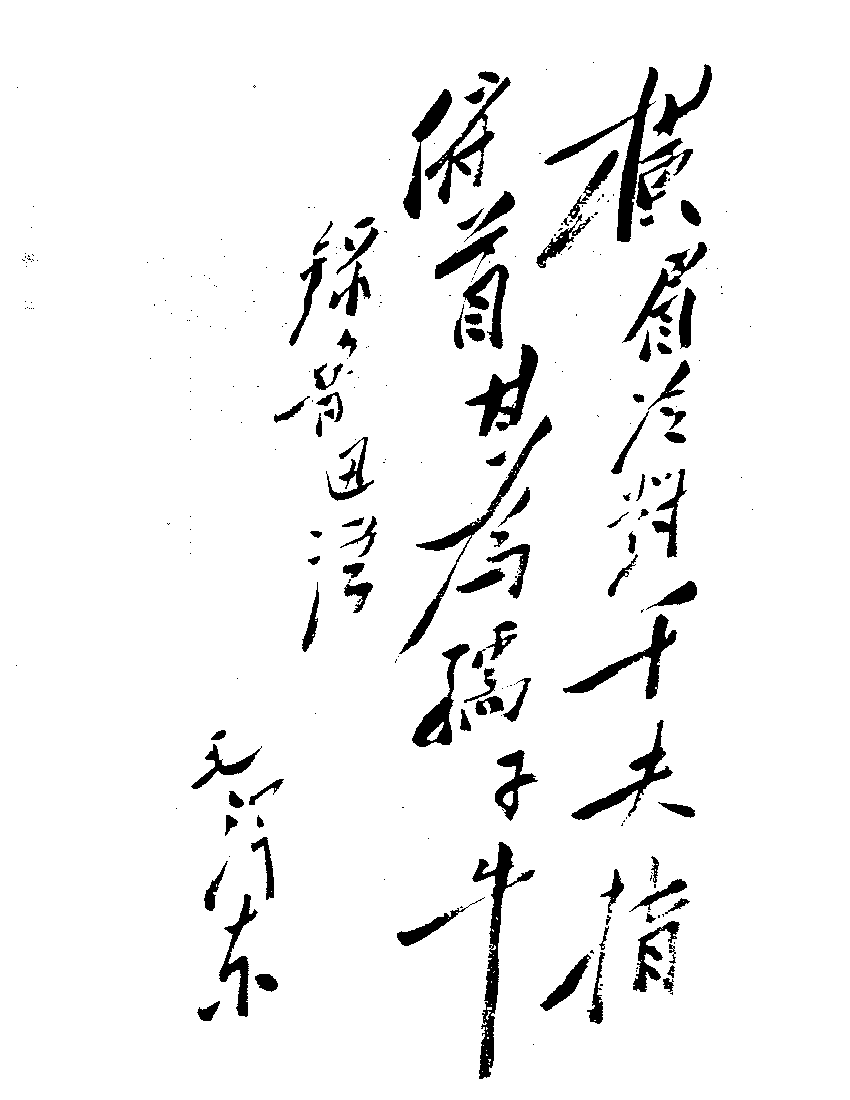 橫眉冷對千夫指
俯首甘為孺子牛
錄魯迅語
毛澤東